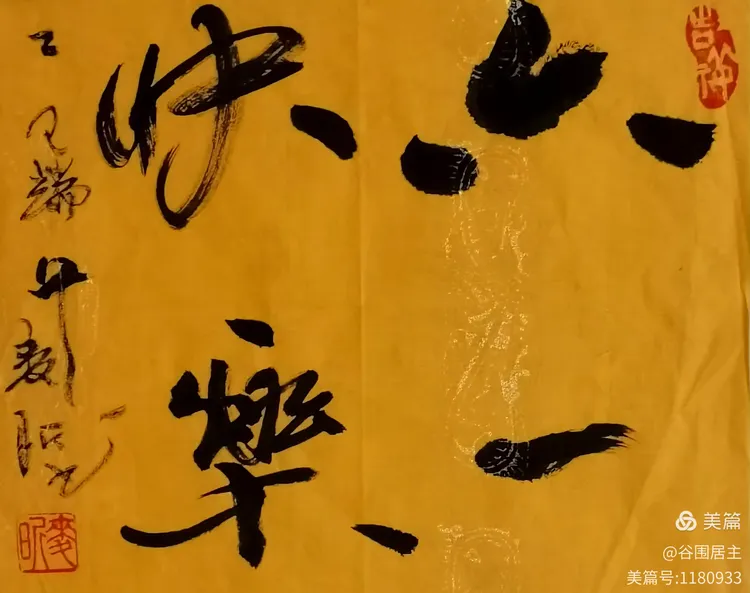 吉祥
六一
快樂
乙巳端午
美篇
@谷围居主
美篇号:1180933